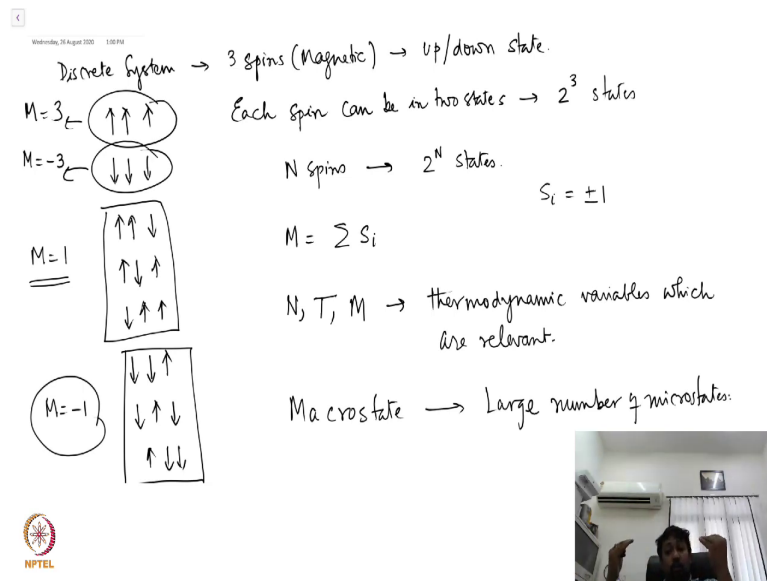 Wednesday, 26 August 2020 1:00 PM
Discrete System → 3 spins (Magnetic) → up/down state.
M = 3 ← ↑↑↑
Each spin can be in two states → 2³ states
M = -3 ← ↓↓↓
N spins → 2ᴺ states.
Sᵢ = ±1
↑↑↓
M = 1
↑↓↑
↓↑↑
M = Σ Sᵢ
N, T, M → thermodynamic variables which
are relevant.
↓↓↑
M = -1
↓↑↓
↑↓↓
Macrostate → Large number of microstates.
NPTEL